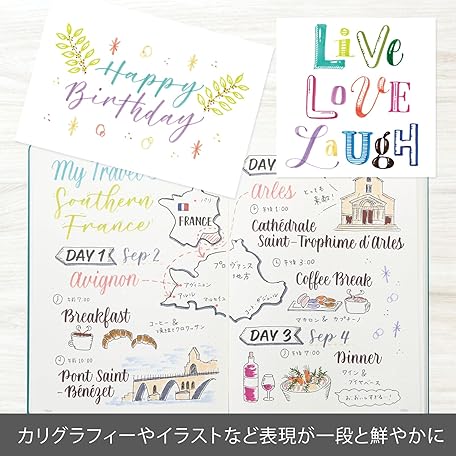 Happy
Birthday
LiVe
LOVE
LaugH
My Travel
Southern
France
パリ
FRANCE
DAY 1 Sep 2
Avignon
午前 7:00
Breakfast
コーヒー &
午前 10:00
Pont Saint
-Bénézet
プロヴァンス
地方
アヴィニョン
アルル
マルセイユ
DAY
Arles
とっても
素敵!
午後 1:00
Cathédrale
Saint-Trophime d'Arles
午後 3:00
Coffee Break
マカロン & カプチーノ
DAY 3 Sep 4
Dinner
ワイン &
ブイヤベース
カリグラフィーやイラストなど表現が一段と鮮やかに